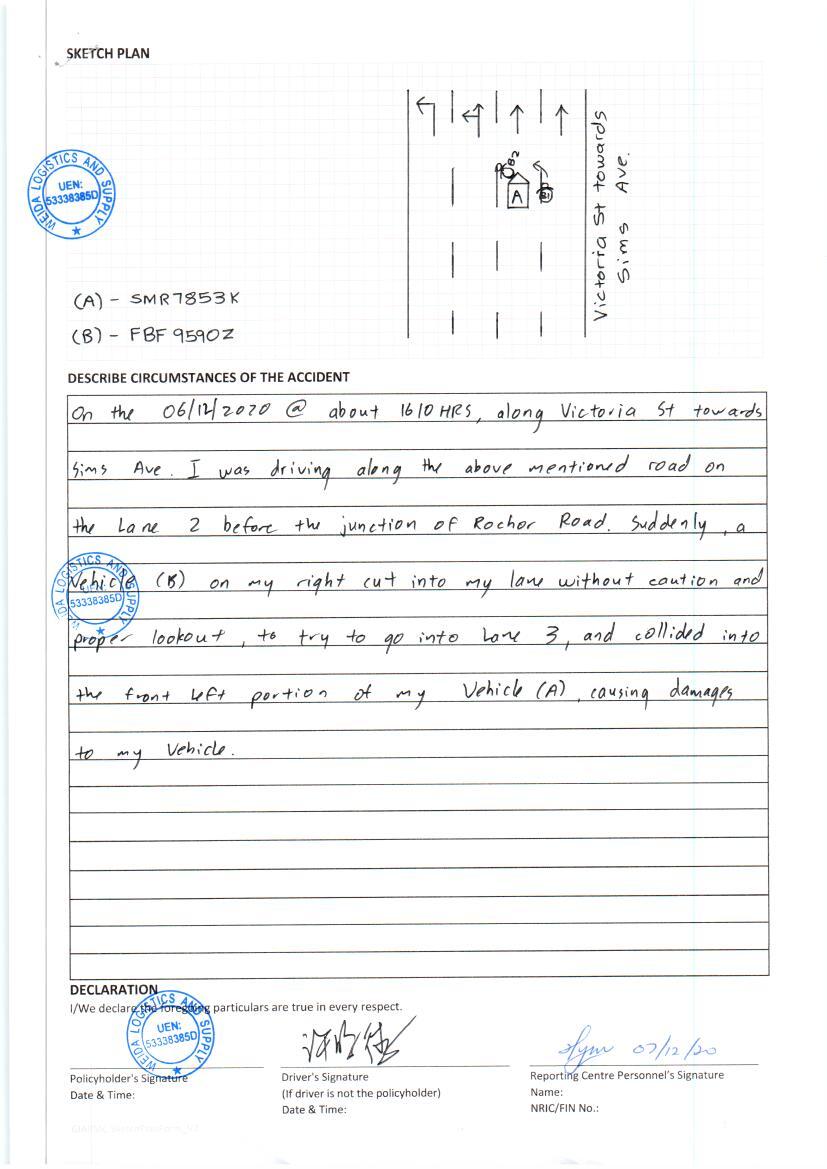 SKETCH PLAN
B2
A
B1
Victoria St towards
Sims Ave.
WEIDA LOGISTICS AND SUPPLY
UEN:
53338385D
(A) - SMR7853K
(B) - FBF9590Z
DESCRIBE CIRCUMSTANCES OF THE ACCIDENT
On the 06/12/2020 @ about 1610 HRS, along Victoria St towards
Sims Ave. I was driving along the above mentioned road on
the Lane 2 before the junction of Rochor Road. Suddenly, a
Vehicle (B) on my right cut into my lane without caution and
proper lookout, to try to go into Lane 3, and collided into
the front left portion of my Vehicle (A), causing damages
to my Vehicle.
WEIDA LOGISTICS AND SUPPLY
UEN:
53338385D
DECLARATION
I/We declare the foregoing particulars are true in every respect.
WEIDA LOGISTICS AND SUPPLY
UEN:
53338385D
07/12/20
Policyholder's Signature
Date & Time:
Driver's Signature
(If driver is not the policyholder)
Date & Time:
Reporting Centre Personnel's Signature
Name:
NRIC/FIN No.: